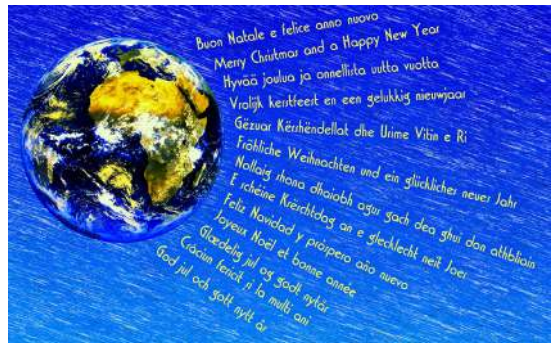 Buon Natale e felice anno nuovo
Merry Christmas and a Happy New Year
Hyvää joulua ja onnellista uutta vuotta
Vrolijk kerstfeest en een gelukkig nieuwjaar
Gëzuar Kërshëndellat dhe Urime Vitin e Ri
Fröhliche Weihnachten und ein glückliches neues Jahr
Nollaig shona dhaoibh agus gach dea ghuí don athbhliain
E schéine Krëschtdag an e glecklecht neit Joer
Feliz Navidad y próspero año nuevo
Joyeux Noël et bonne année
Glædelig jul og godt nytår
Crăciun fericit si la multi ani
God jul och gott nytt år